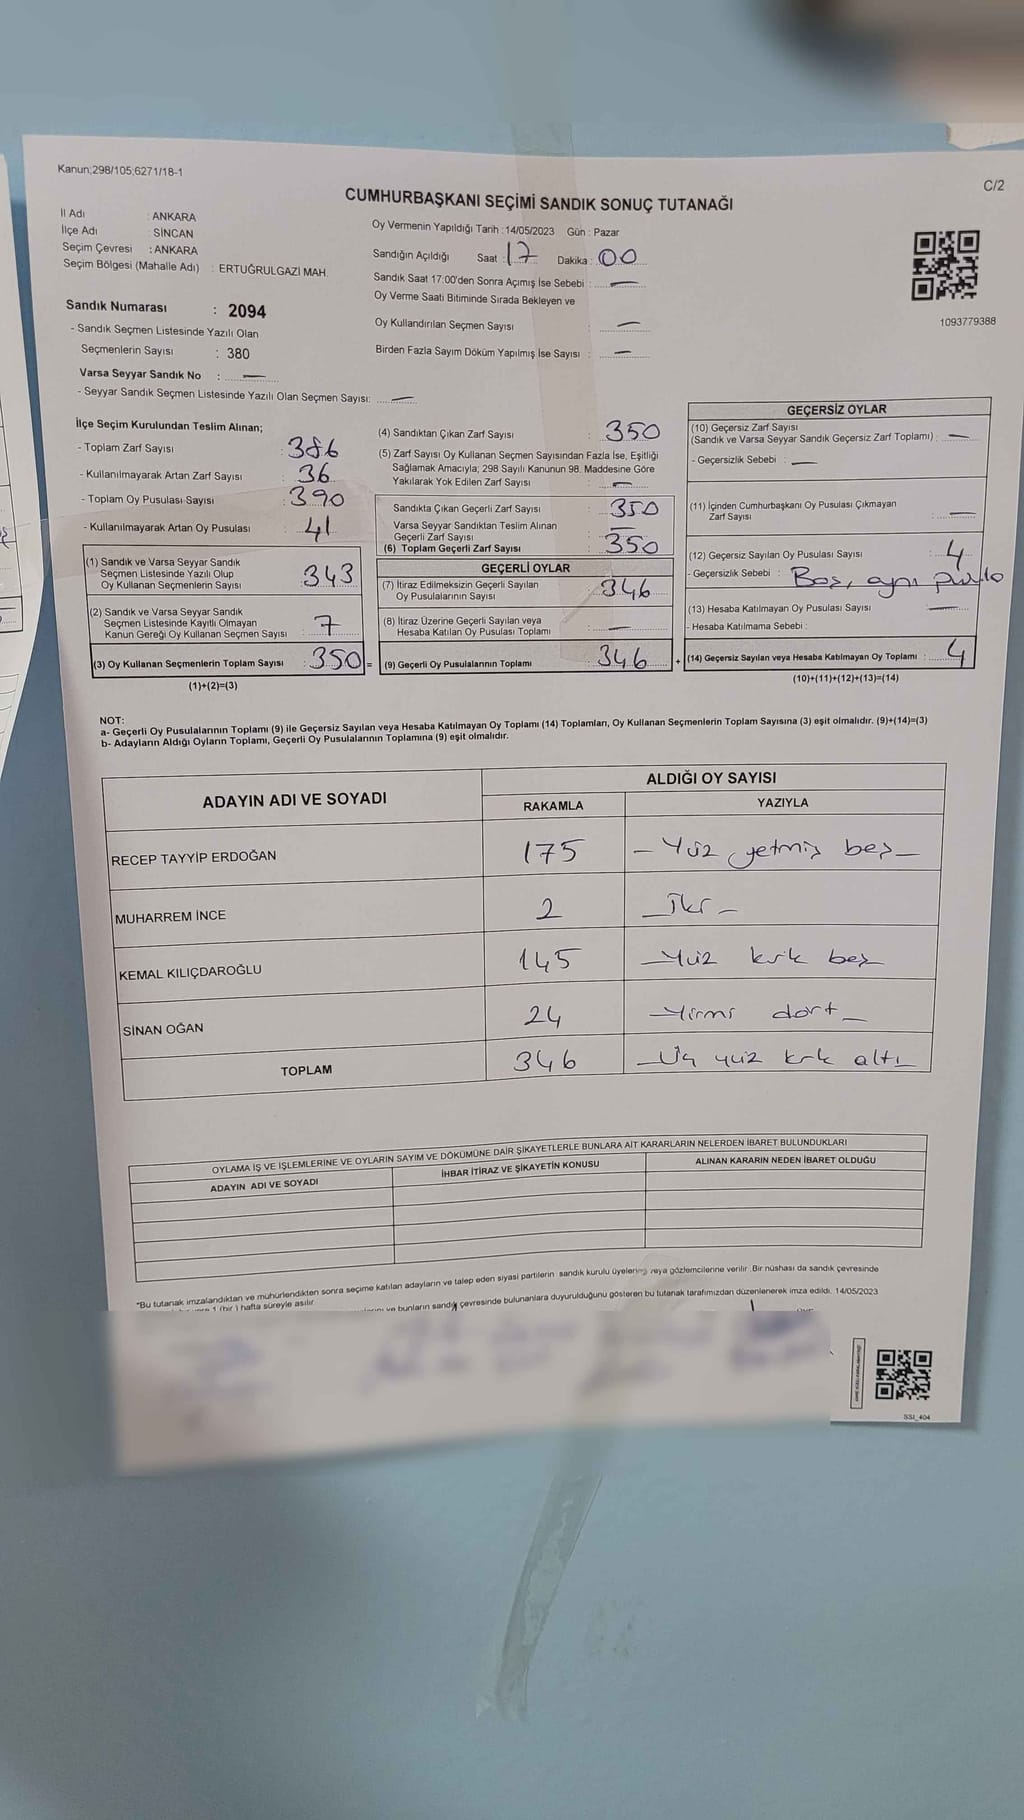 Kanun;298/105;6271/18-1
C/2
CUMHURBAŞKANI SEÇİMİ SANDIK SONUÇ TUTANAĞI
İl Adı : ANKARA
İlçe Adı : SİNCAN
Seçim Çevresi : ANKARA
Seçim Bölgesi (Mahalle Adı) : ERTUĞRULGAZİ MAH.
Sandık Numarası : 2094
- Sandık Seçmen Listesinde Yazılı Olan
Seçmenlerin Sayısı : 380
Varsa Seyyar Sandık No : —
- Seyyar Sandık Seçmen Listesinde Yazılı Olan Seçmen Sayısı: —
Oy Vermenin Yapıldığı Tarih : 14/05/2023 Gün : Pazar
Sandığın Açıldığı Saat : 17 Dakika : 00
Sandık Saat 17:00'den Sonra Açımış İse Sebebi : —
Oy Verme Saati Bitiminde Sırada Bekleyen ve
Oy Kullandırılan Seçmen Sayısı : —
Birden Fazla Sayım Döküm Yapılmış İse Sayısı : —
1093779388
İlçe Seçim Kurulundan Teslim Alınan;
- Toplam Zarf Sayısı : 386
- Kullanılmayarak Artan Zarf Sayısı : 36
- Toplam Oy Pusulası Sayısı : 390
- Kullanılmayarak Artan Oy Pusulası : 41
(1) Sandık ve Varsa Seyyar Sandık
Seçmen Listesinde Yazılı Olup
Oy Kullanan Seçmenlerin Sayısı : 343
(2) Sandık ve Varsa Seyyar Sandık
Seçmen Listesinde Kayıtlı Olmayan
Kanun Gereği Oy Kullanan Seçmen Sayısı : 7
(3) Oy Kullanan Seçmenlerin Toplam Sayısı : 350 =
(1)+(2)=(3)
(4) Sandıktan Çıkan Zarf Sayısı : 350
(5) Zarf Sayısı Oy Kullanan Seçmen Sayısından Fazla İse, Eşitliği
Sağlamak Amacıyla; 298 Sayılı Kanunun 98. Maddesine Göre
Yakılarak Yok Edilen Zarf Sayısı : —
Sandıkta Çıkan Geçerli Zarf Sayısı : 350
Varsa Seyyar Sandıktan Teslim Alınan
Geçerli Zarf Sayısı : —
(6) Toplam Geçerli Zarf Sayısı : 350
GEÇERLİ OYLAR
(7) İtiraz Edilmeksizin Geçerli Sayılan
Oy Pusulalarının Sayısı : 346
(8) İtiraz Üzerine Geçerli Sayılan veya
Hesaba Katılan Oy Pusulası Toplamı : —
(9) Geçerli Oy Pusulalarının Toplamı : 346 +
GEÇERSİZ OYLAR
(10) Geçersiz Zarf Sayısı
(Sandık ve Varsa Seyyar Sandık Geçersiz Zarf Toplamı) : —
- Geçersizlik Sebebi : —
(11) İçinden Cumhurbaşkanı Oy Pusulası Çıkmayan
Zarf Sayısı : —
(12) Geçersiz Sayılan Oy Pusulası Sayısı : 4
- Geçersizlik Sebebi : Boş, aynı pusula
(13) Hesaba Katılmayan Oy Pusulası Sayısı : —
- Hesaba Katılmama Sebebi :
(14) Geçersiz Sayılan veya Hesaba Katılmayan Oy Toplamı : 4
(10)+(11)+(12)+(13)=(14)
NOT:
a- Geçerli Oy Pusulalarının Toplamı (9) ile Geçersiz Sayılan veya Hesaba Katılmayan Oy Toplamı (14) Toplamları, Oy Kullanan Seçmenlerin Toplam Sayısına (3) eşit olmalıdır. (9)+(14)=(3)
b- Adayların Aldığı Oyların Toplamı, Geçerli Oy Pusulalarının Toplamına (9) eşit olmalıdır.
ADAYIN ADI VE SOYADI ALDIĞI OY SAYISI
RAKAMLA YAZIYLA
RECEP TAYYİP ERDOĞAN 175 — Yüz yetmiş beş —
MUHARREM İNCE 2 — İki —
KEMAL KILIÇDAROĞLU 145 — Yüz kırk beş
SİNAN OĞAN 24 — Yirmi dört —
TOPLAM 346 — Üç yüz kırk altı —
OYLAMA İŞ VE İŞLEMLERİNE VE OYLARIN SAYIM VE DÖKÜMÜNE DAİR ŞİKAYETLERLE BUNLARA AİT KARARLARIN NELERDEN İBARET BULUNDUKLARI
ADAYIN ADI VE SOYADI İHBAR İTİRAZ VE ŞİKAYETİN KONUSU ALINAN KARARIN NEDEN İBARET OLDUĞU
*Bu tutanak imzalandıktan ve mühürlendikten sonra seçime katılan adayların ve talep eden siyasi partilerin sandık kurulu üyelerine veya gözlemcilerine verilir. Bir nüshası da sandık çevresinde
1 (bir) hafta süreyle asılır.
ve bunların sandık çevresinde bulunanlara duyurulduğunu gösteren bu tutanak tarafımızdan düzenlenerek imza edildi. 14/05/2023
SSI_404